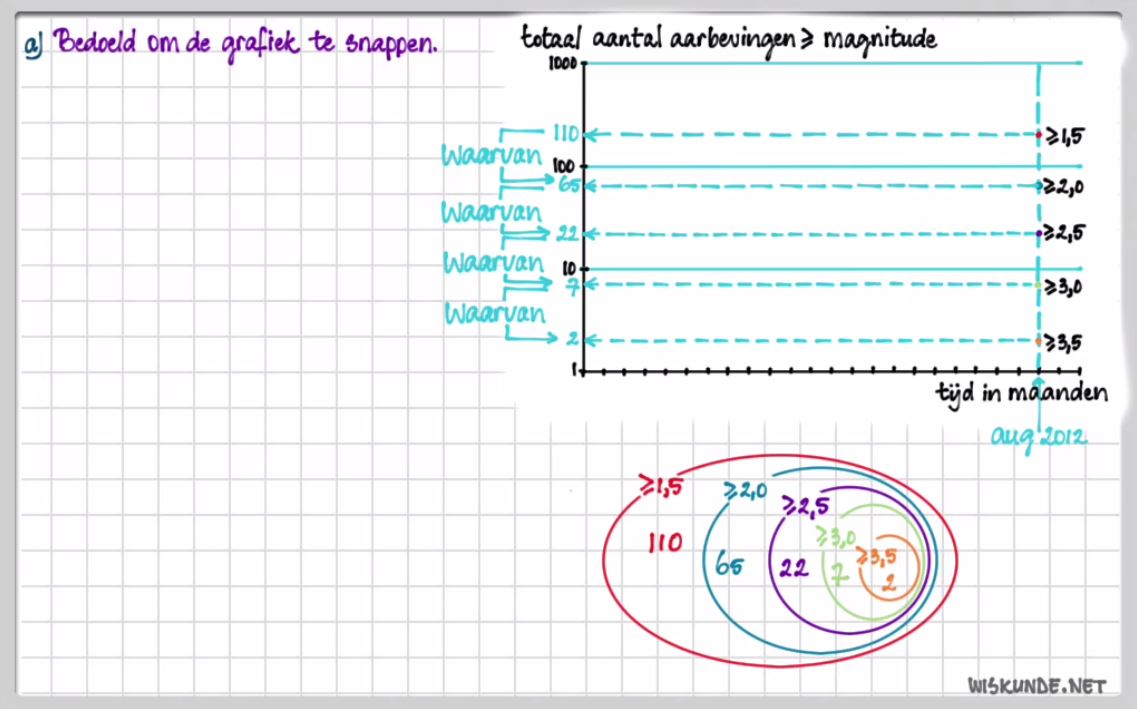 a) Bedoeld om de grafiek te snappen.
totaal aantal aarbevingen ≥ magnitude
1000
110
≥1,5
Waarvan
100
65
≥2,0
Waarvan
22
≥2,5
Waarvan
10
7
≥3,0
Waarvan
2
≥3,5
1
tijd in maanden
aug 2012
≥1,5
≥2,0
≥2,5
≥3,0
≥3,5
110
65
22
7
2
WISKUNDE.NET